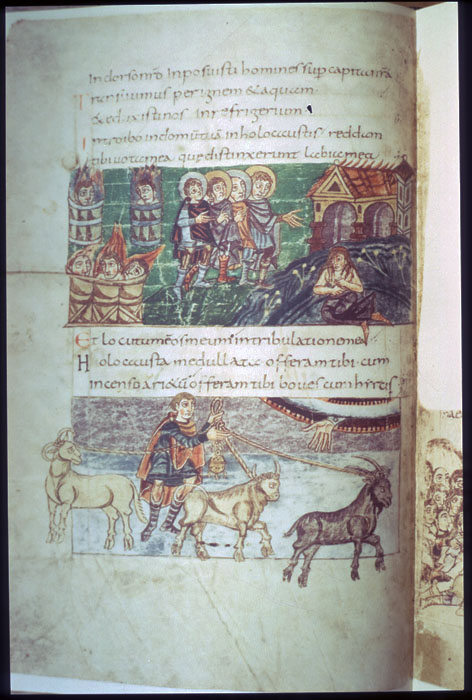 In dorso nr̄o Inposuisti homines sup̄ capita nr̄a
Transiuimus per ignem & aquam
& eduxisti nos in refrigerium
Introibo in domū tuā in holocaustis reddam
tibi uota mea que distinxerunt labia mea
Et locutum ē os meum in tribulatione mea
Holocausta medullata offeram tibi cum
incenso ari&ū offeram tibi boues cum hircis